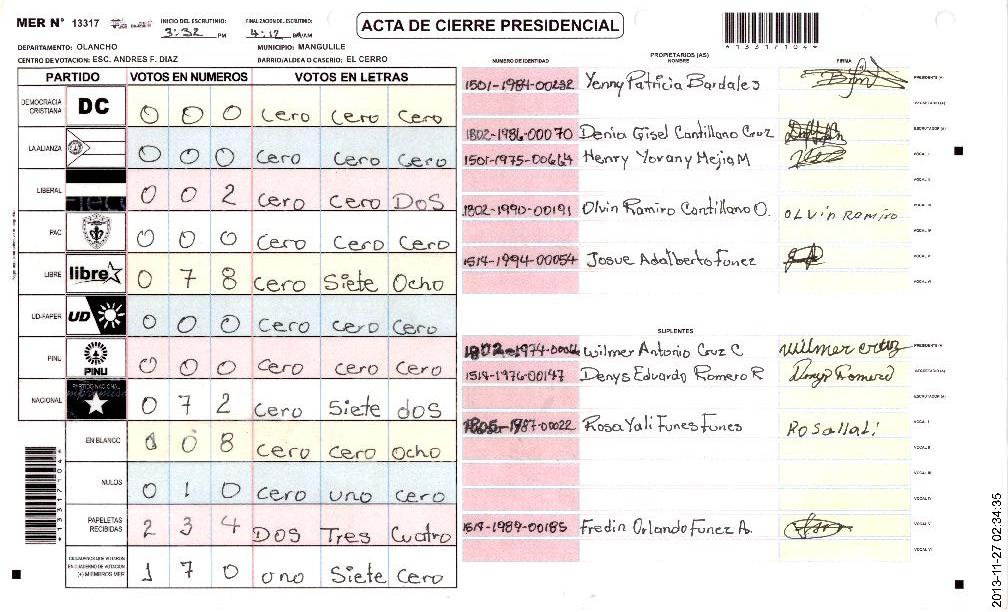 MER N° 13317
INICIO DEL ESCRUTINIO: 3:32 PM
FINALIZACION DEL ESCRUTINIO: 4:12
ACTA DE CIERRE PRESIDENCIAL
*13317104*
DEPARTAMENTO: OLANCHO
MUNICIPIO: MANGULILE
CENTRO DE VOTACION: ESC. ANDRES F. DIAZ
BARRIO/ALDEA O CASERIO: EL CERRO
PARTIDO VOTOS EN NUMEROS VOTOS EN LETRAS
DEMOCRACIA CRISTIANA DC 0 0 0 Cero Cero Cero
LA ALIANZA 0 0 0 Cero Cero Cero
LIBERAL 0 0 2 Cero Cero DoS
PAC 0 0 0 Cero Cero Cero
LIBRE libre 0 7 8 Cero Siete Ocho
UD-FAPER UD 0 0 0 Cero Cero Cero
PINU PINU 0 0 0 Cero Cero Cero
NACIONAL PARTIDO NACIONAL 0 7 2 Cero Siete dos
EN BLANCO 0 0 8 Cero Cero Ocho
NULOS 0 1 0 Cero uno Cero
PAPELETAS RECIBIDAS 2 3 4 Dos Tres Cuatro
CIUDADANOS QUE VOTARON EN CUADERNO DE VOTACION (+) MIEMBROS MER 1 7 0 uno Siete Cero
*13317104*
PROPIETARIOS (AS)
NUMERO DE IDENTIDAD NOMBRE FIRMA
1501-1984-00232 Yenny Patricia Bardales PRESIDENTE (A)
SECRETARIO (A)
1802-1986-00070 Denia Gisel Cantillano Cruz ESCRUTADOR (A)
1501-1975-00664 Henry Yovany Mejia M VOCAL I
VOCAL II
1802-1990-00191 Olvin Ramiro Cantillano O. OLVIN RAMIRO VOCAL III
VOCAL IV
1514-1994-00054 Josue Adalberto Funez VOCAL V
VOCAL VI
SUPLENTES
Wilmer Antonio Cruz C wilmer cruz PRESIDENTE (A)
1514-1976-00147 Denys Eduardo Romero R Denys Romero SECRETARIO (A)
ESCRUTADOR (A)
Rosa Yali Funes Funes VOCAL I
VOCAL II
VOCAL III
VOCAL IV
1514-1989-00185 Fredin Orlando Funez A. VOCAL V
VOCAL VI
2013-11-27 02:34:35